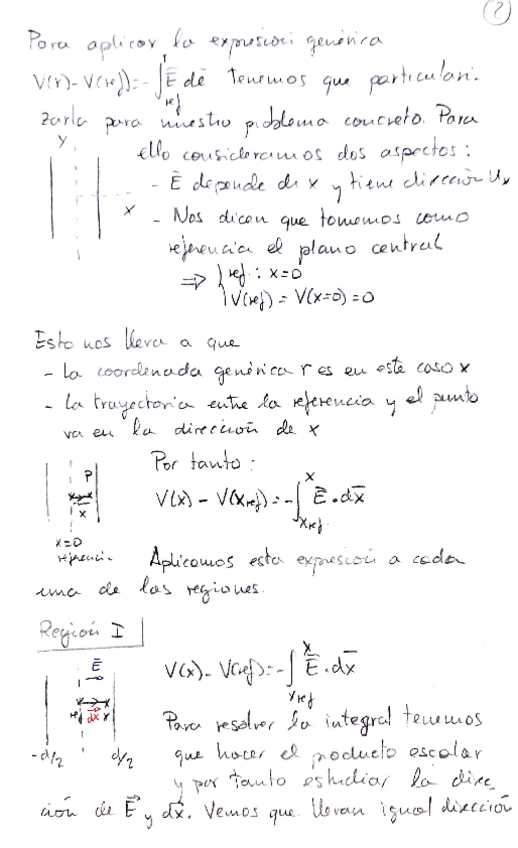 2
Para aplicar la expresión genérica
V(r) - V(ref) = - ∫_ref^r Ē dē Tenemos que particulari-
zarla para nuestro problema concreto. Para
ello consideramos dos aspectos:
Y
- Ē depende de x y tiene dirección Ux
X
- Nos dicen que tomemos como
referencia el plano central
⇒ { ref : x=0
V(ref) = V(x=0) = 0
Esto nos lleva a que
- La coordenada genérica r es en este caso x
- La trayectoria entre la referencia y el punto
va en la dirección de x
Por tanto:
P
x
V(x) - V(xref) = - ∫_xref^x Ē . dx̄
x=0
referenci.
Aplicamos esta expresión a cada
una de las regiones.
Región I
Ē
V(x) - V(ref) = - ∫_xref^x Ē . dx̄
ref dx x
-d/2 d/2
Para resolver la integral tenemos
que hacer el producto escalar
y por tanto estudiar la direc-
ción de E⃗ y dx̄. Vemos que llevan igual dirección